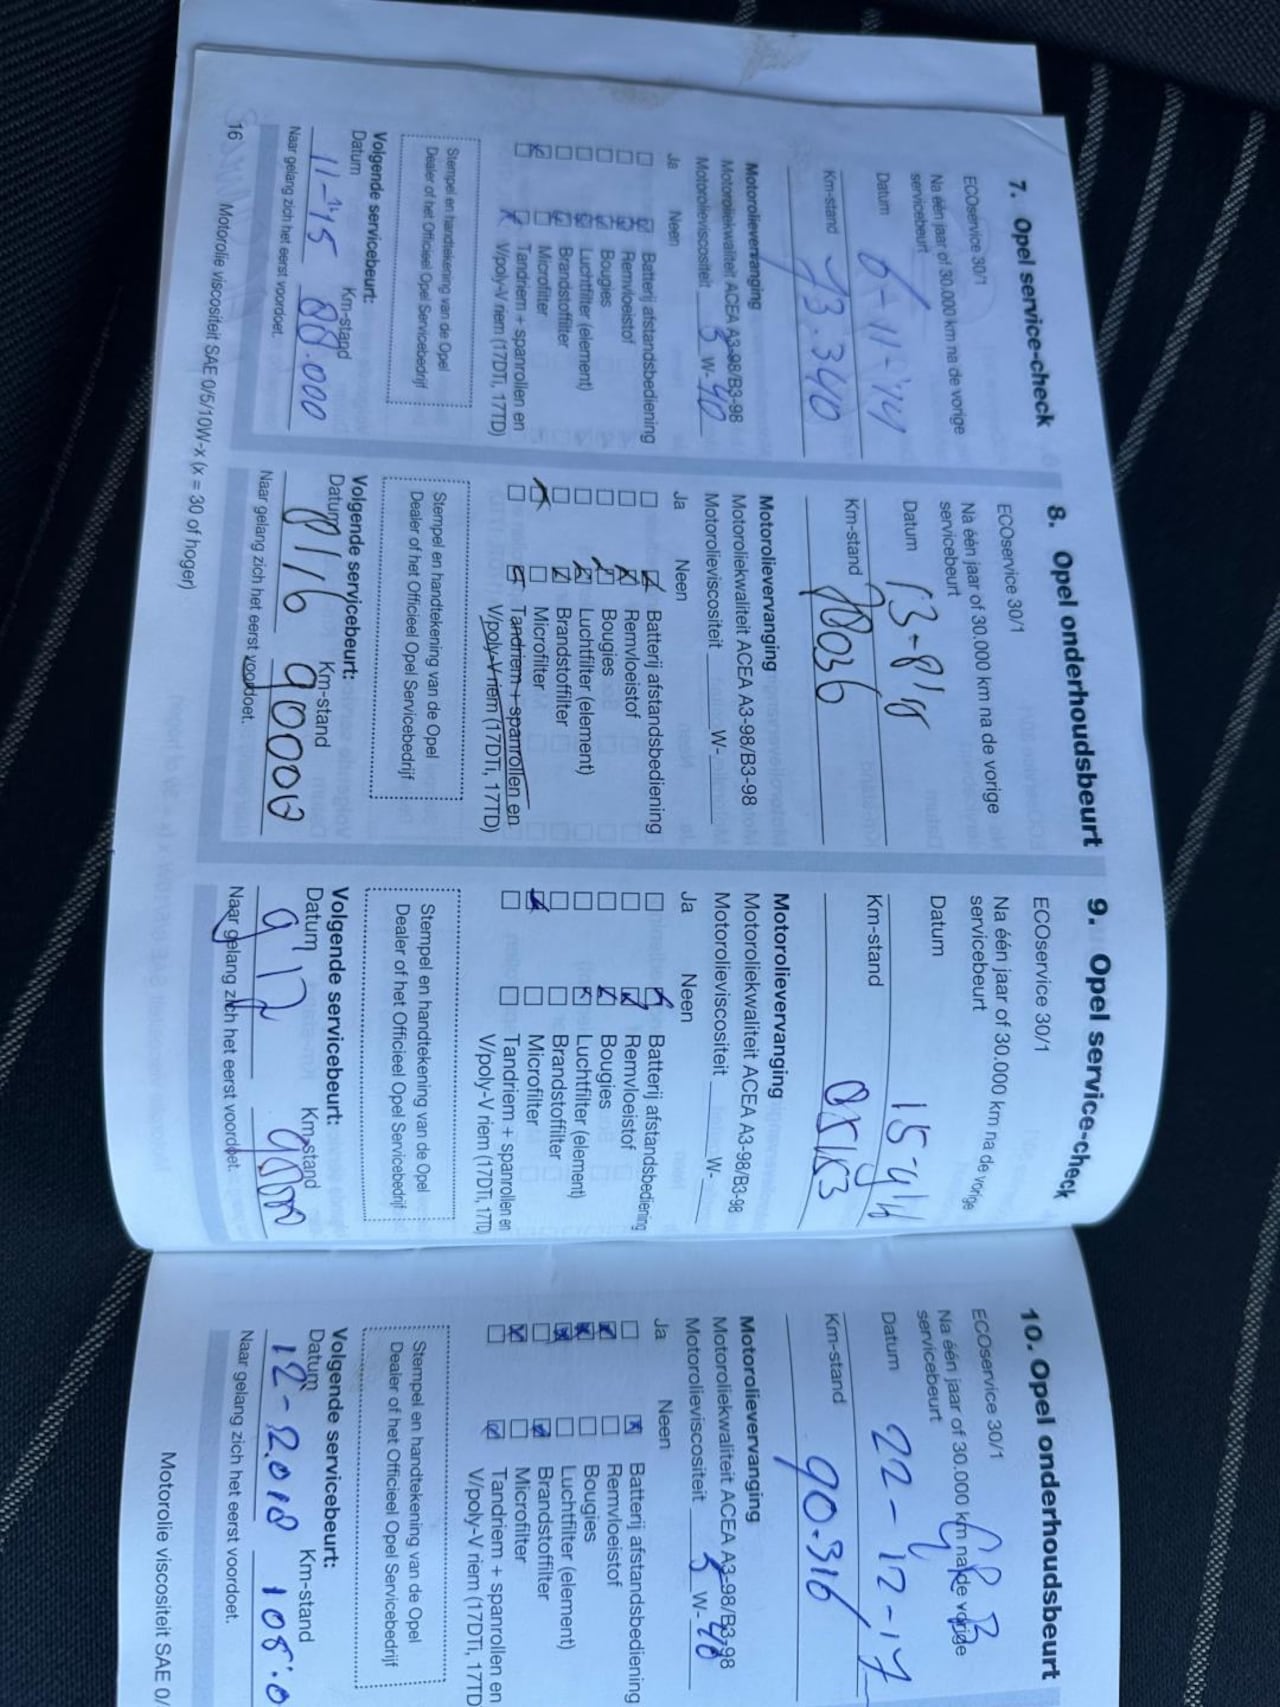 7. Opel service-check
ECOservice 30/1
Na één jaar of 30.000 km na de vorige
servicebeurt
Datum 6-11-'14
Km-stand 73.340
Motorolievervanging
Motoroliekwaliteit ACEA A3-98/B3-98
Motorolieviscositeit 5 W-40
Ja Neen
Batterij afstandsbediening
Remvloeistof
Bougies
Luchtfilter (element)
Brandstoffilter
Microfilter
Tandriem + spanrollen en
V/poly-V riem (17DTi, 17TD)
Stempel en handtekening van de Opel
Dealer of het Officieel Opel Servicebedrijf
Volgende servicebeurt:
Datum Km-stand
11-'15 88.000
Naar gelang zich het eerst voordoet.
16 Motorolie viscositeit SAE 0/5/10W-x (x = 30 of hoger)
8. Opel onderhoudsbeurt
ECOservice 30/1
Na één jaar of 30.000 km na de vorige
servicebeurt
Datum 13-8-'15
Km-stand 78036
Motorolievervanging
Motoroliekwaliteit ACEA A3-98/B3-98
Motorolieviscositeit W-
Ja Neen
Batterij afstandsbediening
Remvloeistof
Bougies
Luchtfilter (element)
Brandstoffilter
Microfilter
Tandriem + spanrollen en
V/poly-V riem (17DTi, 17TD)
Stempel en handtekening van de Opel
Dealer of het Officieel Opel Servicebedrijf
Volgende servicebeurt:
Datum Km-stand
8/16 90000
Naar gelang zich het eerst voordoet.
9. Opel service-check
ECOservice 30/1
Na één jaar of 30.000 km na de vorige
servicebeurt
Datum 15-9-'16
Km-stand 85153
Motorolievervanging
Motoroliekwaliteit ACEA A3-98/B3-98
Motorolieviscositeit W-
Ja Neen
Batterij afstandsbediening
Remvloeistof
Bougies
Luchtfilter (element)
Brandstoffilter
Microfilter
Tandriem + spanrollen en
V/poly-V riem (17DTi, 17TD)
Stempel en handtekening van de Opel
Dealer of het Officieel Opel Servicebedrijf
Volgende servicebeurt:
Datum Km-stand
9'17
Naar gelang zich het eerst voordoet.
10. Opel onderhoudsbeurt
ECOservice 30/1
Na één jaar of 30.000 km na de vorige
servicebeurt
Datum 22-12-17
Km-stand 90.316
Motorolievervanging
Motoroliekwaliteit ACEA A3-98/B3-98
Motorolieviscositeit 5 W-40
Ja Neen
Batterij afstandsbediening
Remvloeistof
Bougies
Luchtfilter (element)
Brandstoffilter
Microfilter
Tandriem + spanrollen en
V/poly-V riem (17DTi, 17TD
Stempel en handtekening van de Opel
Dealer of het Officieel Opel Servicebedrijf
Volgende servicebeurt:
Datum Km-stand
12-2018 105.0
Naar gelang zich het eerst voordoet.
Motorolie viscositeit SAE 0/